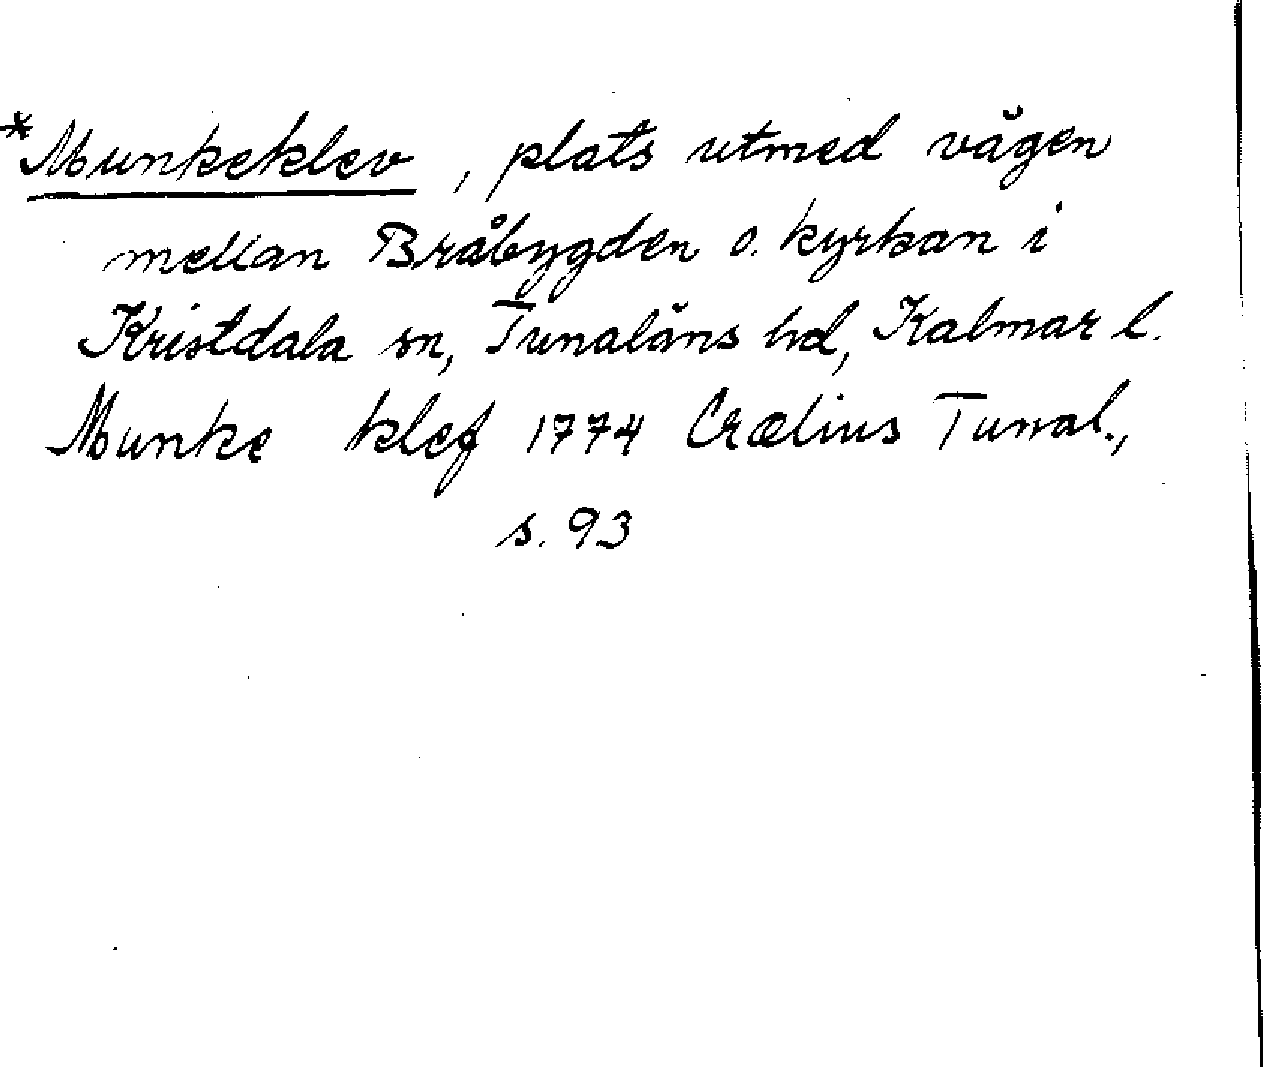 *Munkeklev, plats utmed vägen
mellan Bråbygden o. kyrkan i
Kristdala sn, Tunaläns hd, Kalmar l.
Munke klef 1774 Crælius Tunal.,
s. 93